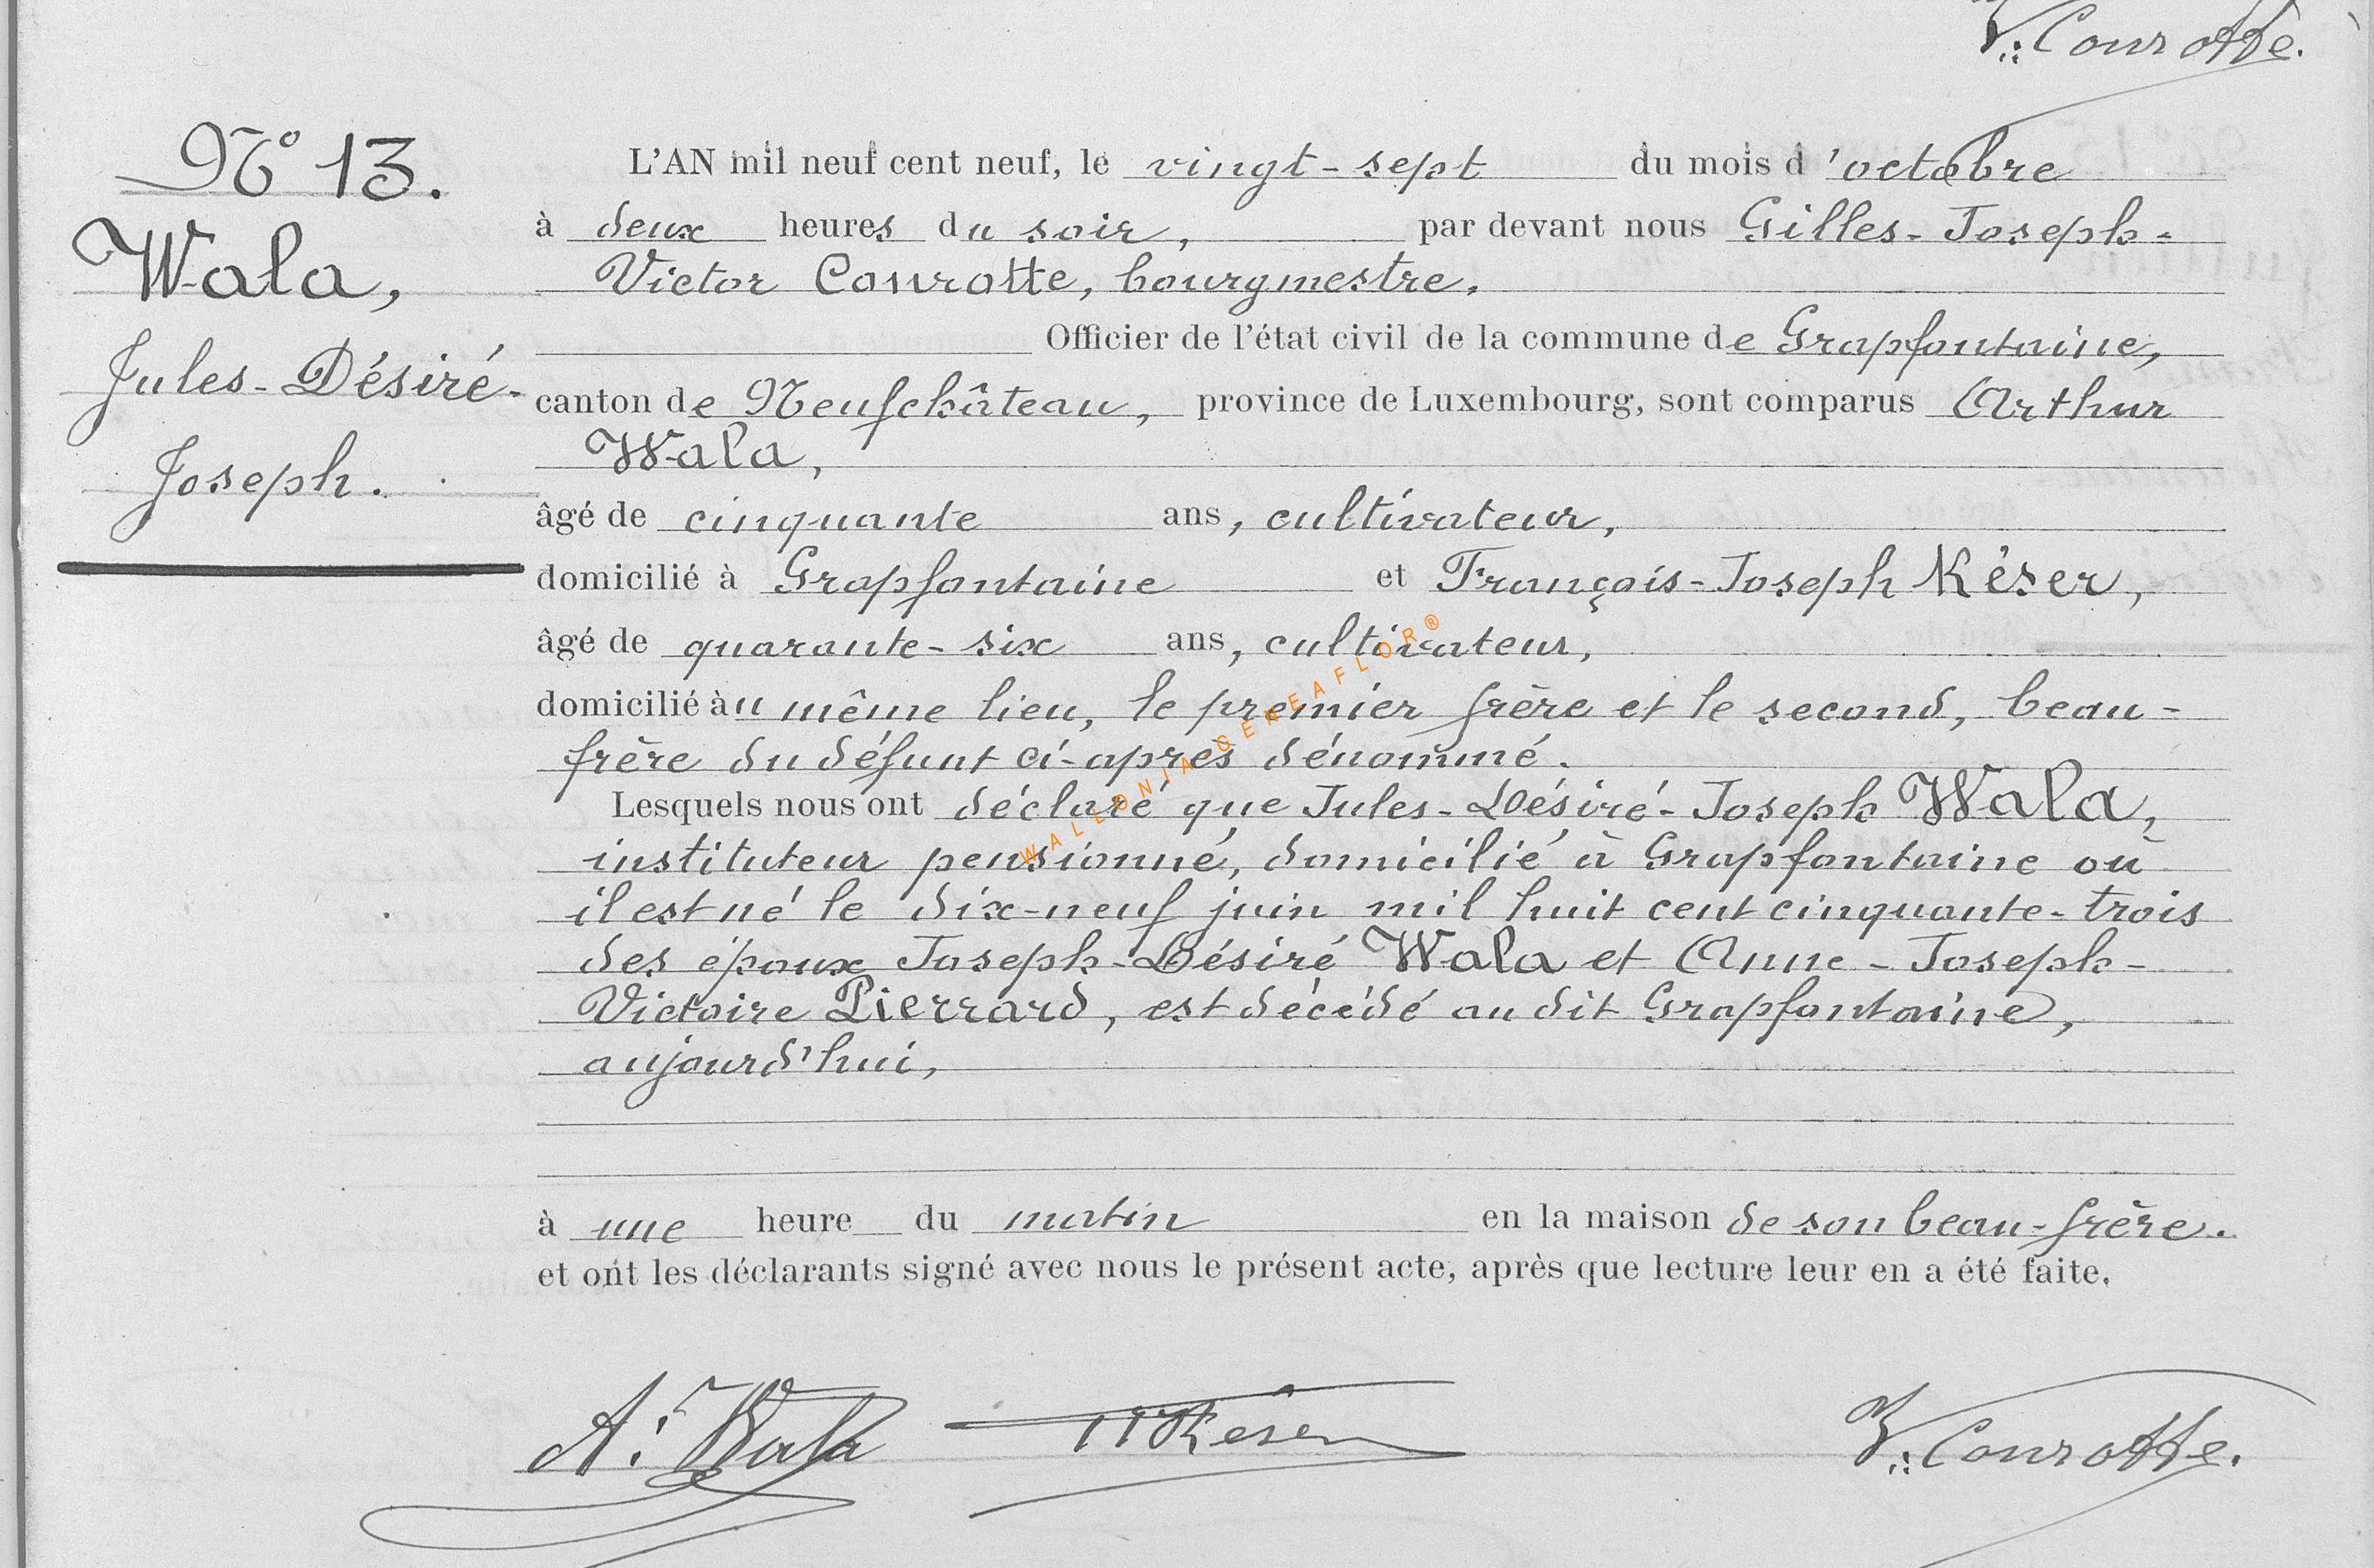 V. Courotte.
N° 13.
Wala,
Jules-Désiré-
Joseph.
L'AN mil neuf cent neuf, le vingt-sept du mois d'octobre
à deux heures du soir, par devant nous Gilles-Joseph-
Victor Courotte, bourgmestre,
Officier de l'état civil de la commune de Grapfontaine,
canton de Neufchâteau, province de Luxembourg, sont comparus Arthur
Wala,
âgé de cinquante ans, cultivateur,
domicilié à Grapfontaine et François-Joseph Késer,
âgé de quarante-six ans, cultivateur,
domicilié àu même lieu, le premier frère et le second, beau-
frère du défunt ci-après dénommé.
Lesquels nous ont déclaré que Jules-Désiré-Joseph Wala,
instituteur pensionné, domicilié à Grapfontaine où
il est né le dix-neuf juin mil huit cent cinquante-trois
des époux Joseph-Désiré Wala et Anne-Joseph-
Victoire Pierrard, est décédé au dit Grapfontaine,
aujourd'hui,
à une heure du matin en la maison de son beau-frère.
et ont les déclarants signé avec nous le présent acte, après que lecture leur en a été faite.
A. Wala Késer V. Courotte.
WALLONIA-GENEAFLOR®